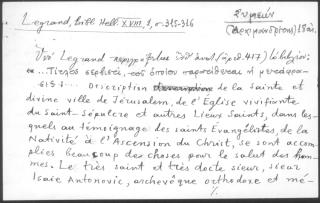 Legrand, Bibl. Hell. XVIII, 1, σ. 315-316
Συμεών
(Ἀρχιμανδρίτης) 18 αι.
Ὑπὸ Legrand περιγράφεται (ἀρ. 417)
"... Πίναξ περιέχει, τοῦ ὁποίου παρατίθεται ἡ
Description de la sainte et
divine ville de Jérusalem, de l'Eglise vivifiante
du Saint-Sépulcre et autres Lieux Saints, dans les-
quels au témoignage des saints Evangélistes, de la
Nativité à l'Ascension du Christ, se sont accom-
plies beaucoup des choses pour le salut des hom-
mes. Le très saint et très docte sieur, sieur
Isaïe Antonovic, archevêque orthodoxe et mé-
%.